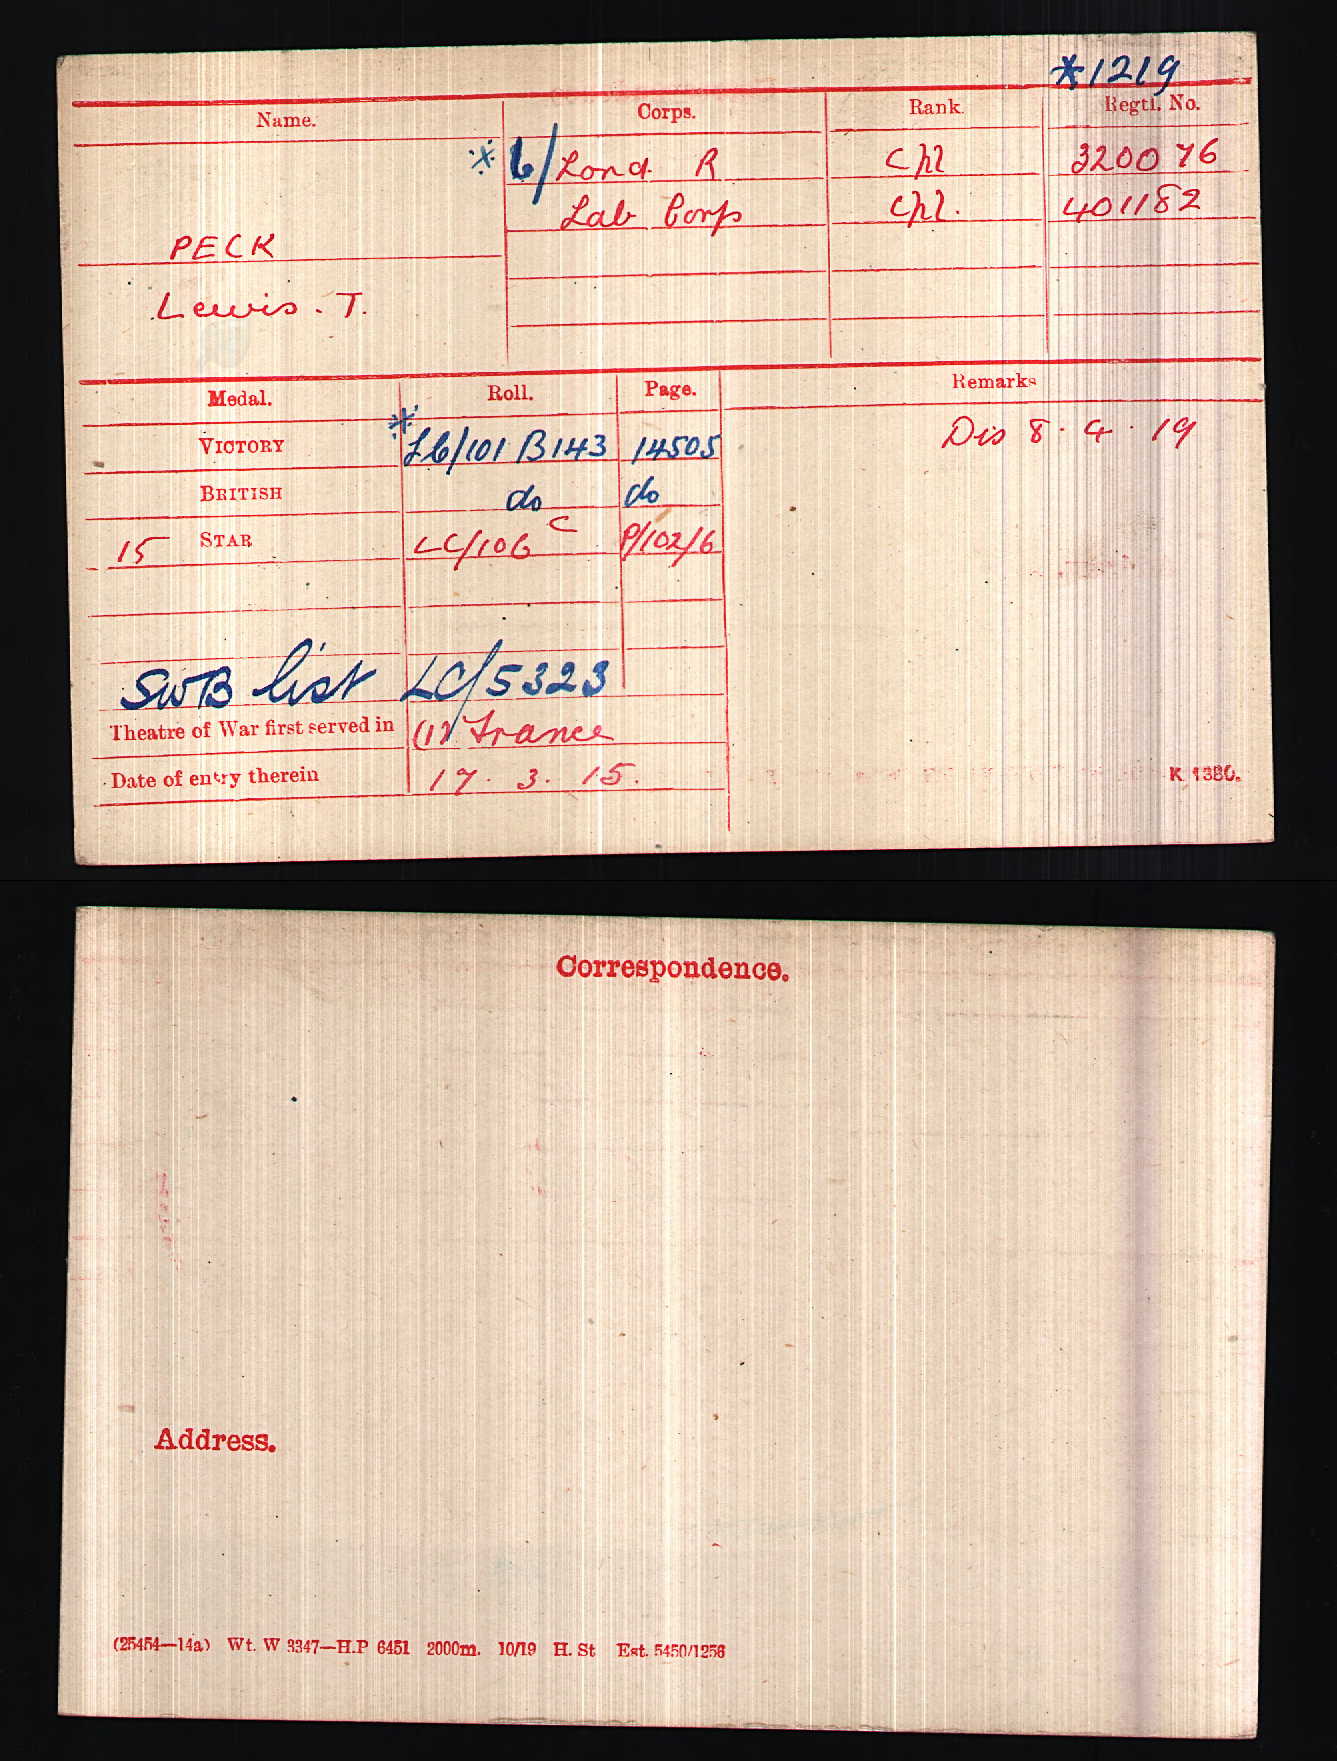 *1219
Name. Corps. Rank. Regtl. No.
* 6/Lond. R Cpl 320076
Lab Corps Cpl. 401182
PECK
Lewis. T.
Medal. Roll. Page. Remarks
VICTORY * L6/101 B143 14505 Dis 8. 4. 19
BRITISH do do
15 STAR LC/106 C P/102/6
SWB list LC/5323
Theatre of War first served in (1) France
Date of entry therein 17. 3. 15.
K 1380.
Correspondence.
Address.
(25454—14a) Wt. W 3347—H.P 6451 2000m. 10/19 H. St Est. 5450/1256